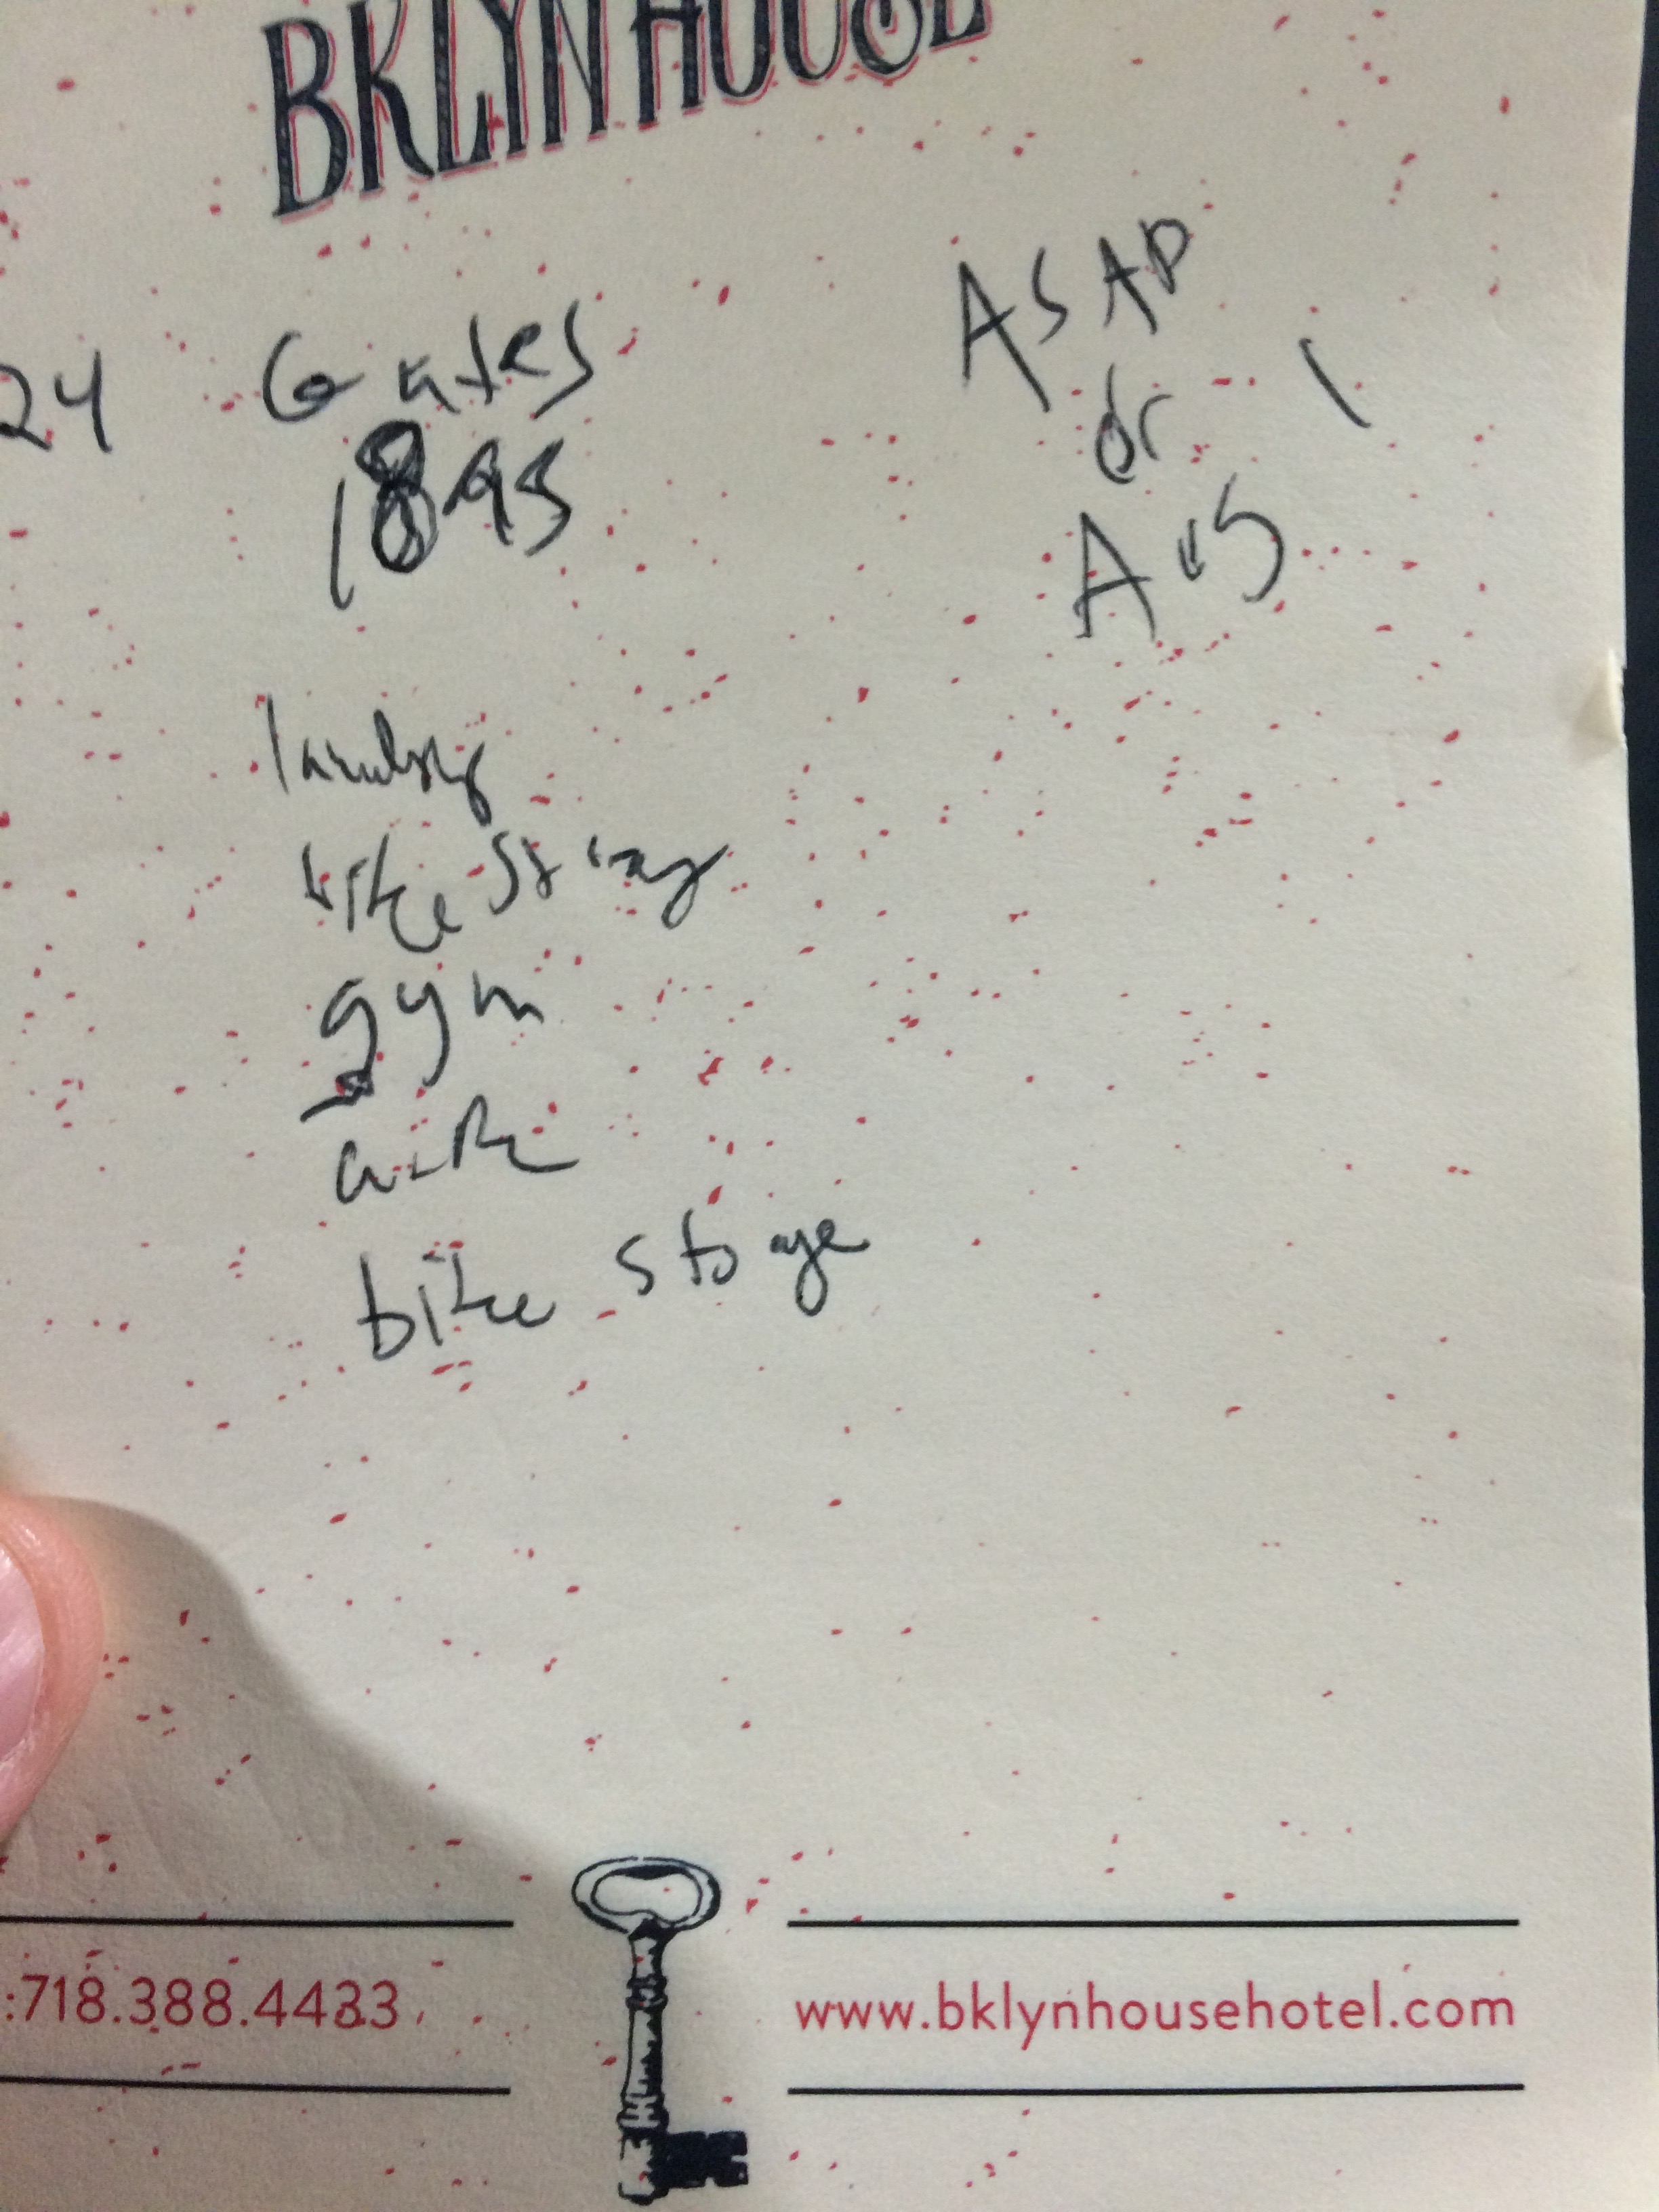 BKLYN HOUSE
24 Gates
1895
ASAP
or
Aug 1
laundry
bike storag
gym
bike storage
:718.388.4433
www.bklynhousehotel.com